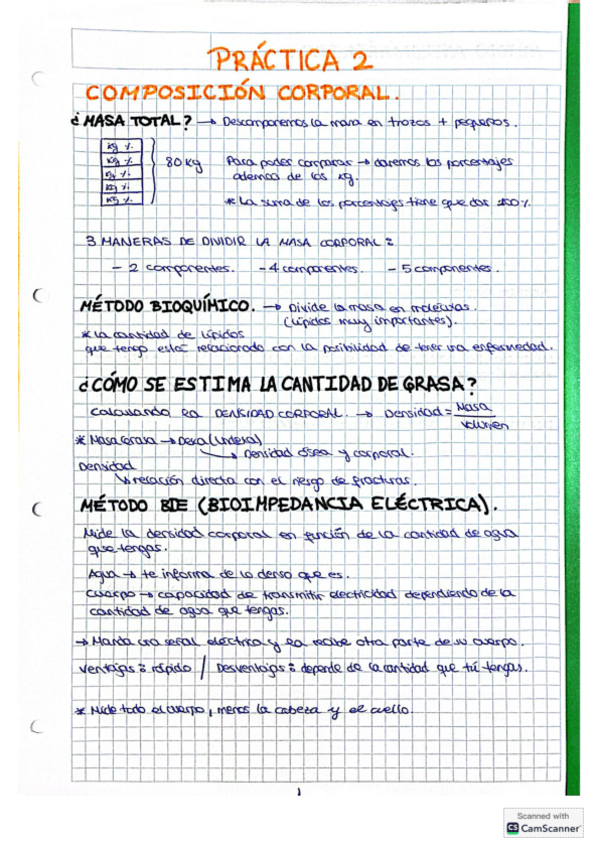 PRÁCTICA 2
COMPOSICIÓN CORPORAL.
¿MASA TOTAL? → Descomponemos la masa en trozos + pequeños.
kg %
kg %
kg %
kg %
kg %
80 kg
Para poder comparar → daremos los porcentajes
además de los kg.
* La suma de los porcentajes tiene que dar 100%
3 MANERAS DE DIVIDIR LA MASA CORPORAL:
- 2 componentes. - 4 componentes. - 5 componentes.
MÉTODO BIOQUÍMICO. → Divide la masa en moléculas.
(Lípidos muy importantes).
* La cantidad de lípidos
que tengo estar relacionado con la posibilidad de tener una enfermedad.
¿CÓMO SE ESTIMA LA CANTIDAD DE GRASA?
Calculando la DENSIDAD CORPORAL. → Densidad = Masa
Volumen
* Masa Grasa → Dexa (Lunar)
→ Densidad ósea y corporal.
Densidad
↳ relación directa con el riesgo de fracturas.
MÉTODO BIE (BIOIMPEDANCIA ELÉCTRICA).
Mide la densidad corporal en función de la cantidad de agua
que tengas.
Agua → te informa de lo denso que es.
Cuerpo → capacidad de transmitir electricidad dependiendo de la
cantidad de agua que tengas.
→ Manda una señal eléctrica y la recibe otra parte de su cuerpo.
Ventajas: rápido / Desventajas: depende de la cantidad que tú tengas.
* Mide todo el cuerpo, menos la cabeza y el cuello.
1
Scanned with
CS CamScanner